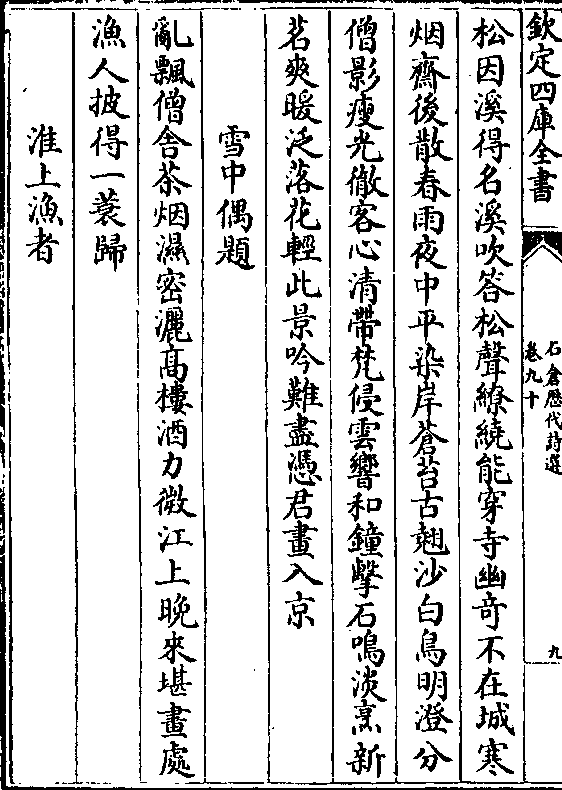 欽定四庫全書
石倉歷代詩選
卷九十
九
松因溪得名溪吹答松聲繚繞能穿寺幽奇不在城寒
烟齋後散春雨夜中平染岸蒼苔古翹沙白鳥明澄分
僧影瘦光徹客心清帶梵侵雲響和鐘擊石鳴淡烹新
茗爽暖泛落花輕此景吟難盡憑君畫入京
雪中偶題
亂飄僧舍茶烟濕密灑高樓酒力微江上晚來堪畫處
漁人披得一蓑歸
淮上漁者